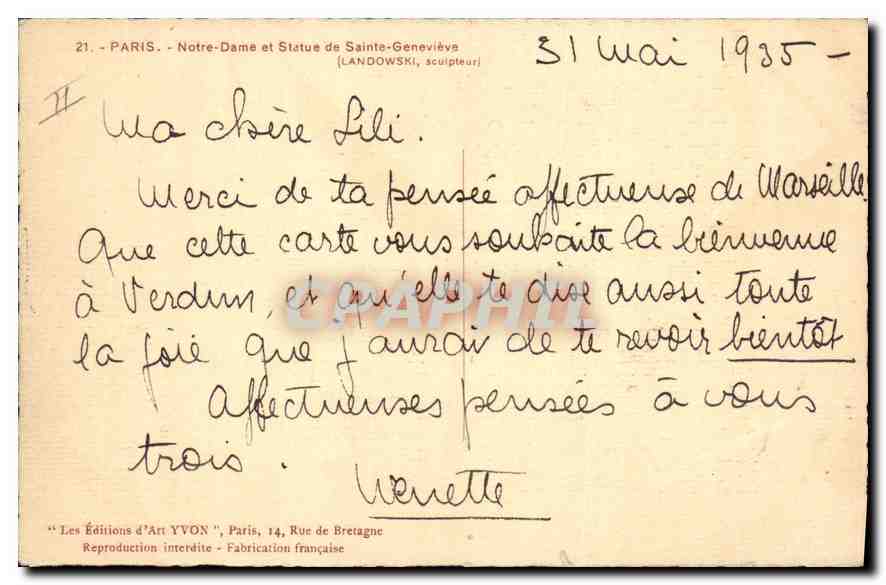 21. - PARIS. - Notre-Dame et Statue de Sainte-Geneviève
(LANDOWSKI, sculpteur)
31 Mai 1935 -
II
Ma chère Lili.
Merci de ta pensée affectueuse de Marseille.
Que cette carte vous souhaite la bienvenue
à Verdun, et qu'elle te dise aussi toute
la joie que j'aurai de te revoir bientôt
Affectueuses pensées à vous
trois.
CPAPHIL
"Les Éditions d'Art YVON", Paris, 14, Rue de Bretagne
Reproduction interdite - Fabrication française